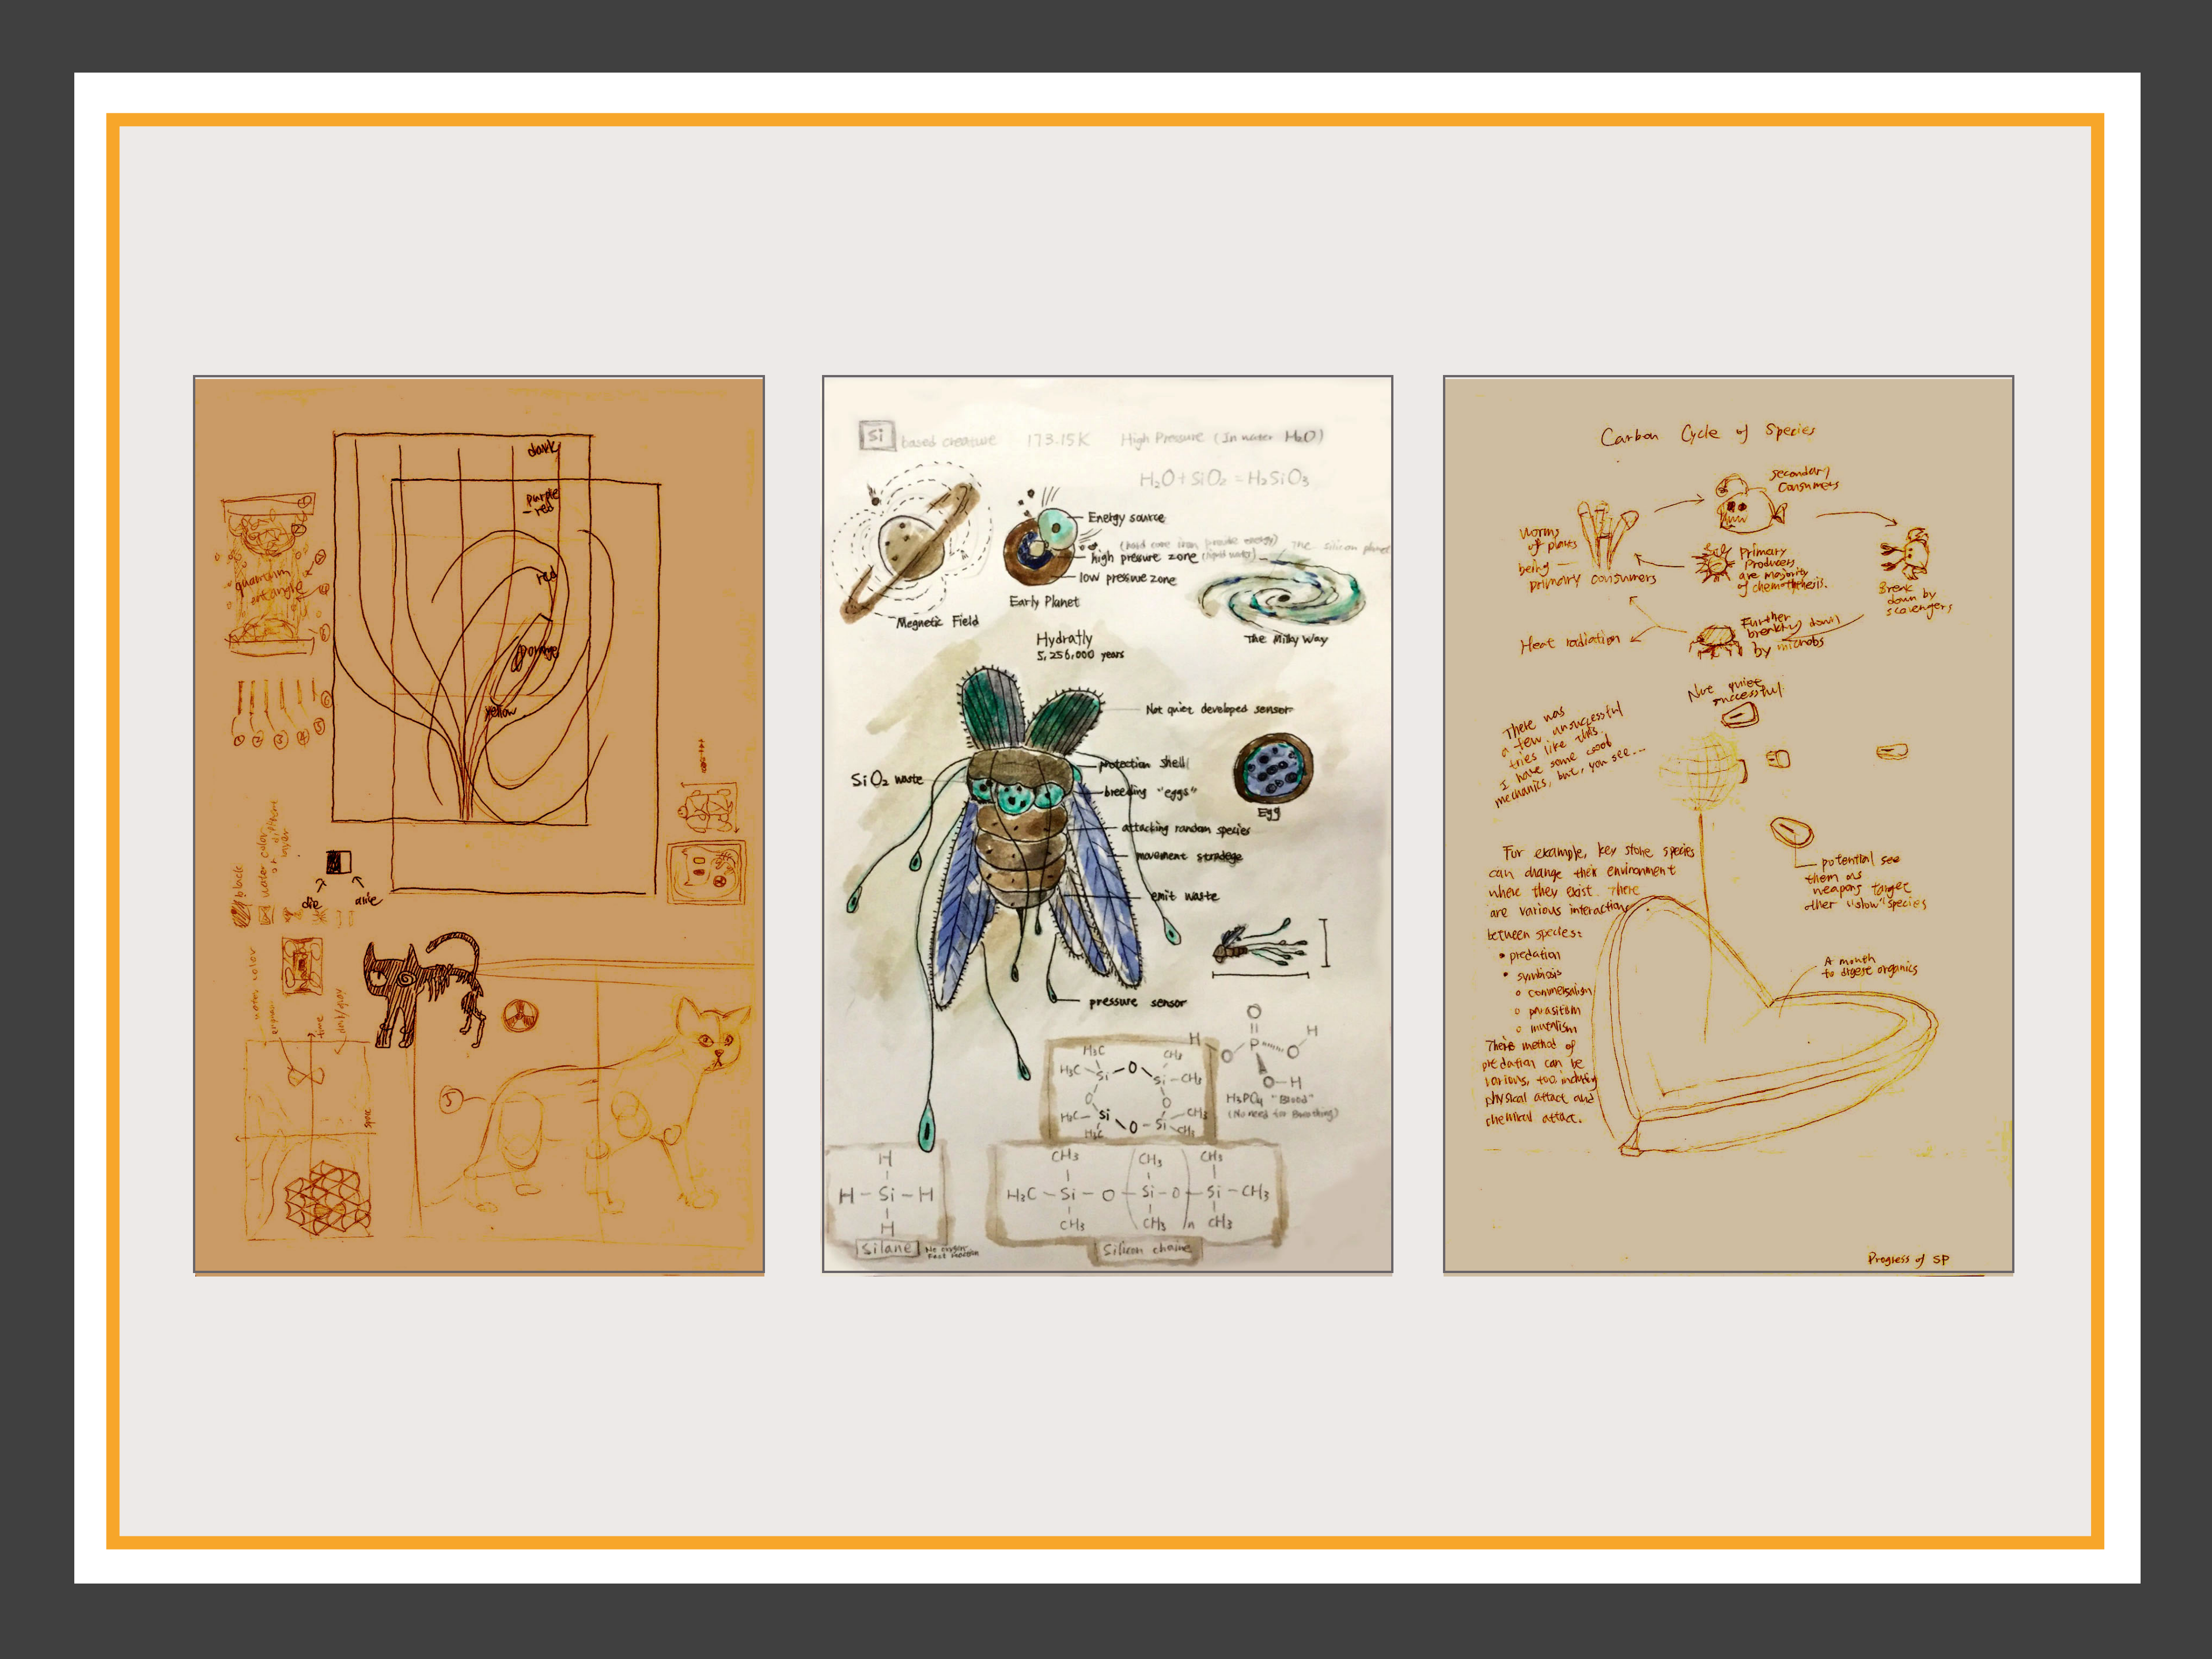 dark
purple
- red
red
orange
yellow
quantum
entangle
black
water color
die
alive
water color
time
dark/gray
space
5
Si based creature 173.15K High Pressure (In water H₂O)
H₂O + SiO₂ = H₂SiO₃
Energy source
high pressure zone (liquid water)
low pressure zone
Early Planet
Megnetic Field
The silicon planet
The Milky Way
Hydratly
5,256,000 years
Not quiet developed sensor
SiO₂ waste
protection shell
breeding "eggs"
Egg
attacking random species
movement stradege
emit waste
pressure sensor
H₃C
CH₃
H₃C - Si - O - Si - CH₃
O
O
H₃C - Si - O - Si - CH₃
H₃C
CH₃
O
H
P
O
O
H
O-H
H₃PO₄ "Blood"
(No need for Breathing)
H
H - Si - H
H
Silane
No oxygen
Fast reaction
CH₃ CH₃ CH₃
H₃C - Si - O - Si - O - Si - CH₃
CH₃ CH₃ n CH₃
Silicon chaine
Carbon Cycle of Species
secondary
Consumers
worms
of plants
being
primary consumers
Primary
Producers
are majority
of chemothesis.
Break
down by
scavengers
Further
breaking down
by microbs
Heat radiation
Not quiet
successful.
There was
a few unsuccessful
tries like this.
I have some good
mechanics, but, you see...
For example, key stone species
can change their environment
where they exist. There
are various interactions
between species:
• predation
• symbiosis
o commensalism
o parasitism
o mutalism
There method of
predation can be
various, too, including
physical attact and
chemical attact.
potential see
them as
weapons target
other "slow" species
A month
to digest organics
Progress of SP